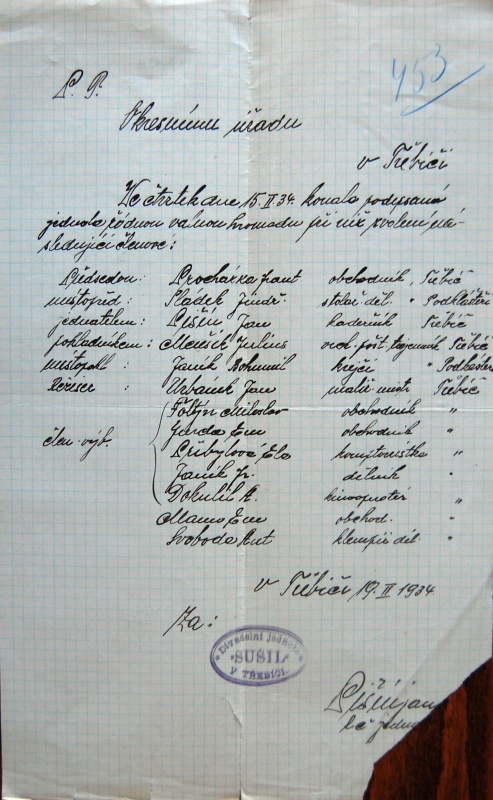 453
L. P.
Okresnímu úřadu
v Třebíči
Ve čtvrtek dne 15. II. 34. konala podepsaná
jednota řádnou valnou hromadu při níž zvoleni ná-
sledující členové:
Předsedou: Procházka Frant obchodník, Třebíč
místopřed: Sladek Jindř. stolař. děl. " Podklášteří
jednatelem: Pišín Jan kadeřník Třebíč
pokladníkem: Menšík Julius vrch. pošt. tajemník Třebíč
místopokl: Janík Bohumil krejčí " Podklášteř
Režiser: Urbánek Jan malíř. mistr Třebíč
Foltýn Miloslav obchodník "
Jurda Em obchodník "
člen. výb. Přibylová Ela komptoiristka "
Janík Jr. dělník "
Dokulil A. kinooperatér "
Mamo Em obchod. "
Svoboda Ant klempíř děl. "
v Třebíči 19. II 1934
Za:
Divadelní jednota
"SUŠIL"
V TŘEBÍČI.
Pišín Jan
t. č. jedn